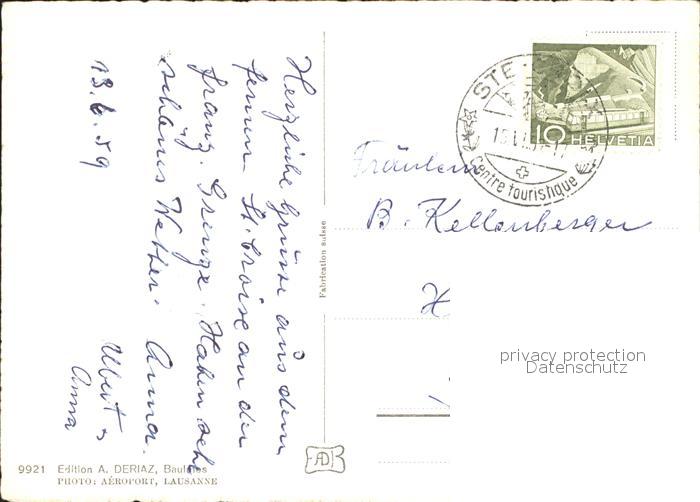 13.6.59
Herzliche Grüsse aus dem
fernen St. Croix an der
franz. Grenze. Haben sehr
schönes Wetter.
Albert &
Anna
Fräulein
B. Kellenberger
H
STE
15.VI.
Centre touristique
10 HELVETIA
Fabrication suisse
privacy protection
Datenschutz
AD
9921 Edition A. DERIAZ, Baulmes
PHOTO: AÉROPORT, LAUSANNE